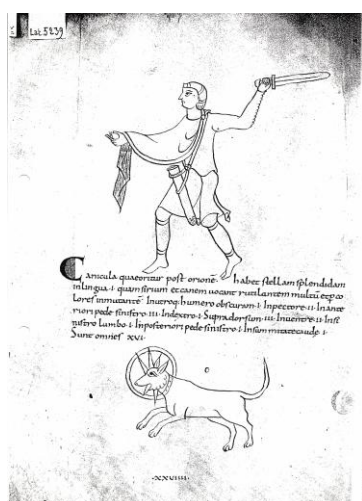 Lat. 5239
Canicula quae oritur post orione· habet stellam splendidam
in lingua·i· quam sirium et canem vocant rutilantem multū et
lores inmutantē· In utroq; humero obscuram·i· In pectore·ii· In ante
riori pede sinistro·iii· In dextro·i· Supra dorsum·iii· In ventre·ii· In si
nistro lumbo·i· In posteriori pede sinistro·i· In summitate caudę·i·
Sunt omnes xvi·
·xxviiii·